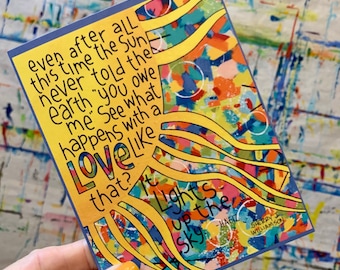 even after all
this time the sun
never told the
earth "you owe
me" See what
happens with a
LOVE like
that?
it
Lights
up the
sky.